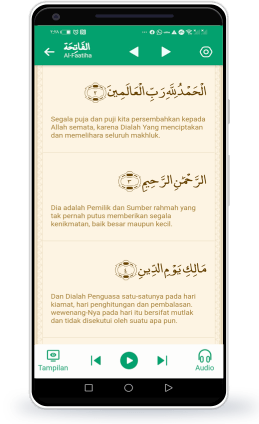 الفاتحة
Al-Faatiha
الْحَمْدُ لِلَّهِ رَبِّ الْعَالَمِينَ ٢
Segala puja dan puji kita persembahkan kepada
Allah semata, karena Dialah Yang menciptakan
dan memelihara seluruh makhluk.
الرَّحْمَٰنِ الرَّحِيمِ ٣
Dia adalah Pemilik dan Sumber rahmah yang
tak pernah putus memberikan segala
kenikmatan, baik besar maupun kecil.
مَالِكِ يَوْمِ الدِّينِ ٤
Dan Dialah Penguasa satu-satunya pada hari
kiamat, hari penghitungan dan pembalasan.
wewenang-Nya pada hari itu bersifat mutlak
dan tidak disekutui oleh suatu apa pun.
Tampilan
Audio